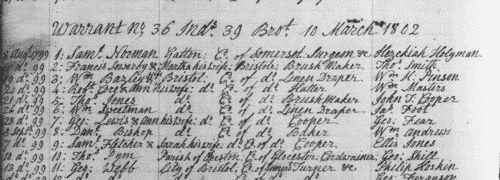 Warrant No. 36 Indx. 39 Brot. 10 March 1802
1: Saml. Norman Yatton: Co. of Somerset Surgeon & Hezekiah Holyman
2: Francis & Martha his wife: Bristol: Brush Maker Thos. Smith
3: Wm. Bazley Bristol, Co. of do. Linen Draper Wm. K. Pinson
do. 99 4: Robt. & Ann his wife: do. Co. of do. Hatter Wm. Masters
do. 99 5: Thos. Jones do. Co. of do. Brush Maker John T. Cooper
do. 99 6: Wm. do. Co. of do. Linen Draper Jas. Foot
do. 99 7: Geo: Lewis & Ann his wife: do. Co. of do. Cooper Geo: Fear
99 8: Danl. Bishop do. Co. of do. Baker Wm. Andrews
do. 99 9: Saml. Fletcher & Sarah his wife: do. Co. of do. Cooper Ellis Jones
do. 99 10: Thos. Pym Parish of Co. of Glocester: Cordwainer: Geo: Shill
do. 99 11: Geo: Webb City of Bristol, Co. of Turner & Philip Hoskin
Geo: Ferguson